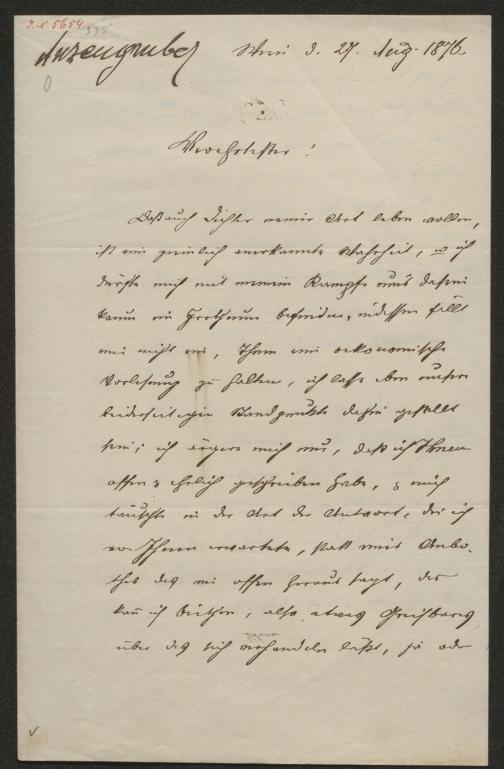 I. N. 5654
335
Anzengruber
Wien d. 27. Aug. 1876.
Verehrtester!
Daß auch Dichter meiner Art leben wollen,
ist eine ziemlich anerkannte Wahrheit, u ich
dürfte mich mit meinem Kampfe um's Dasein
kaum im Irrthume befinden, indessen fällt
mir nicht ein, Ihnen eine oekonomische
Vorlesung zu halten, ich lasse eben unsere
beiderseitigen Standpunkte dahin gestellt
sein; ich ärgere mich nur, daß ich Ihnen
offen & ehrlich geschrieben habe, & mich
täuschte in der Art der Antwort, die ich
von Ihnen erwartete, statt eines Anbo-
thes das mir offen heraus sagt, das
kan ich biethen, also etwas Greifbares
über das sich verhandeln läßt, ja oder